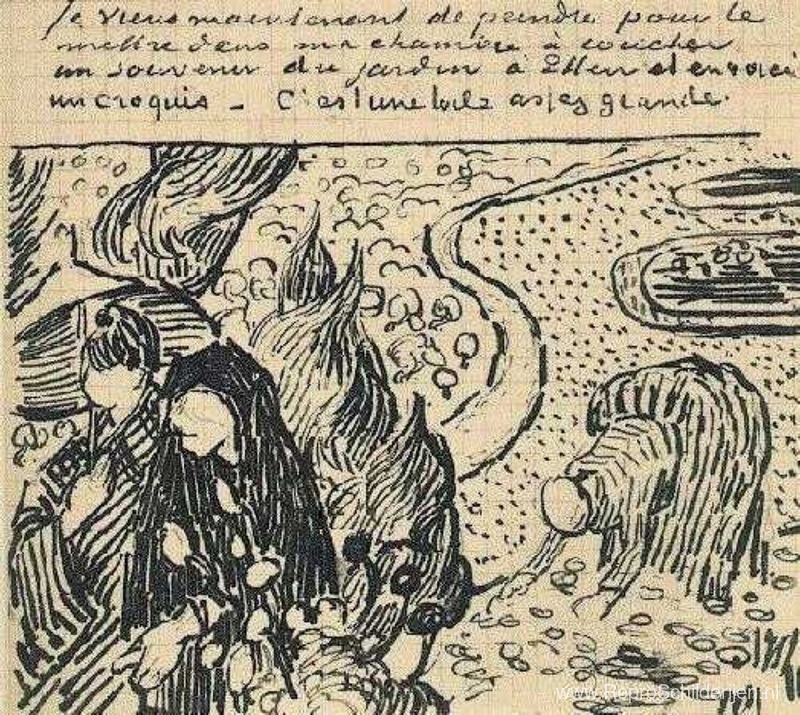 Je viens maintenant de peindre pour le
mettre dans ma chambre à coucher
un souvenir du jardin à Etten et en voici
un croquis – C'est une toile assez grande.
www.ReproSchilderijen.nl